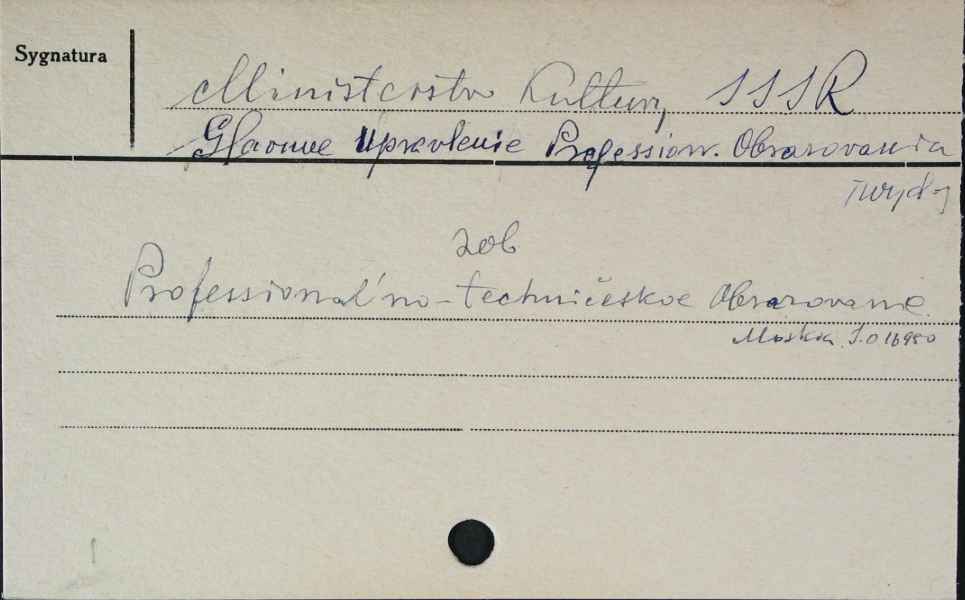 Sygnatura
Ministerstvo Kultury SSSR
Glavnoe Upravlenie Profession. Obrazovania
wyd.
zob
Professional'no-techničeskoe Obrazovanie
Moskva